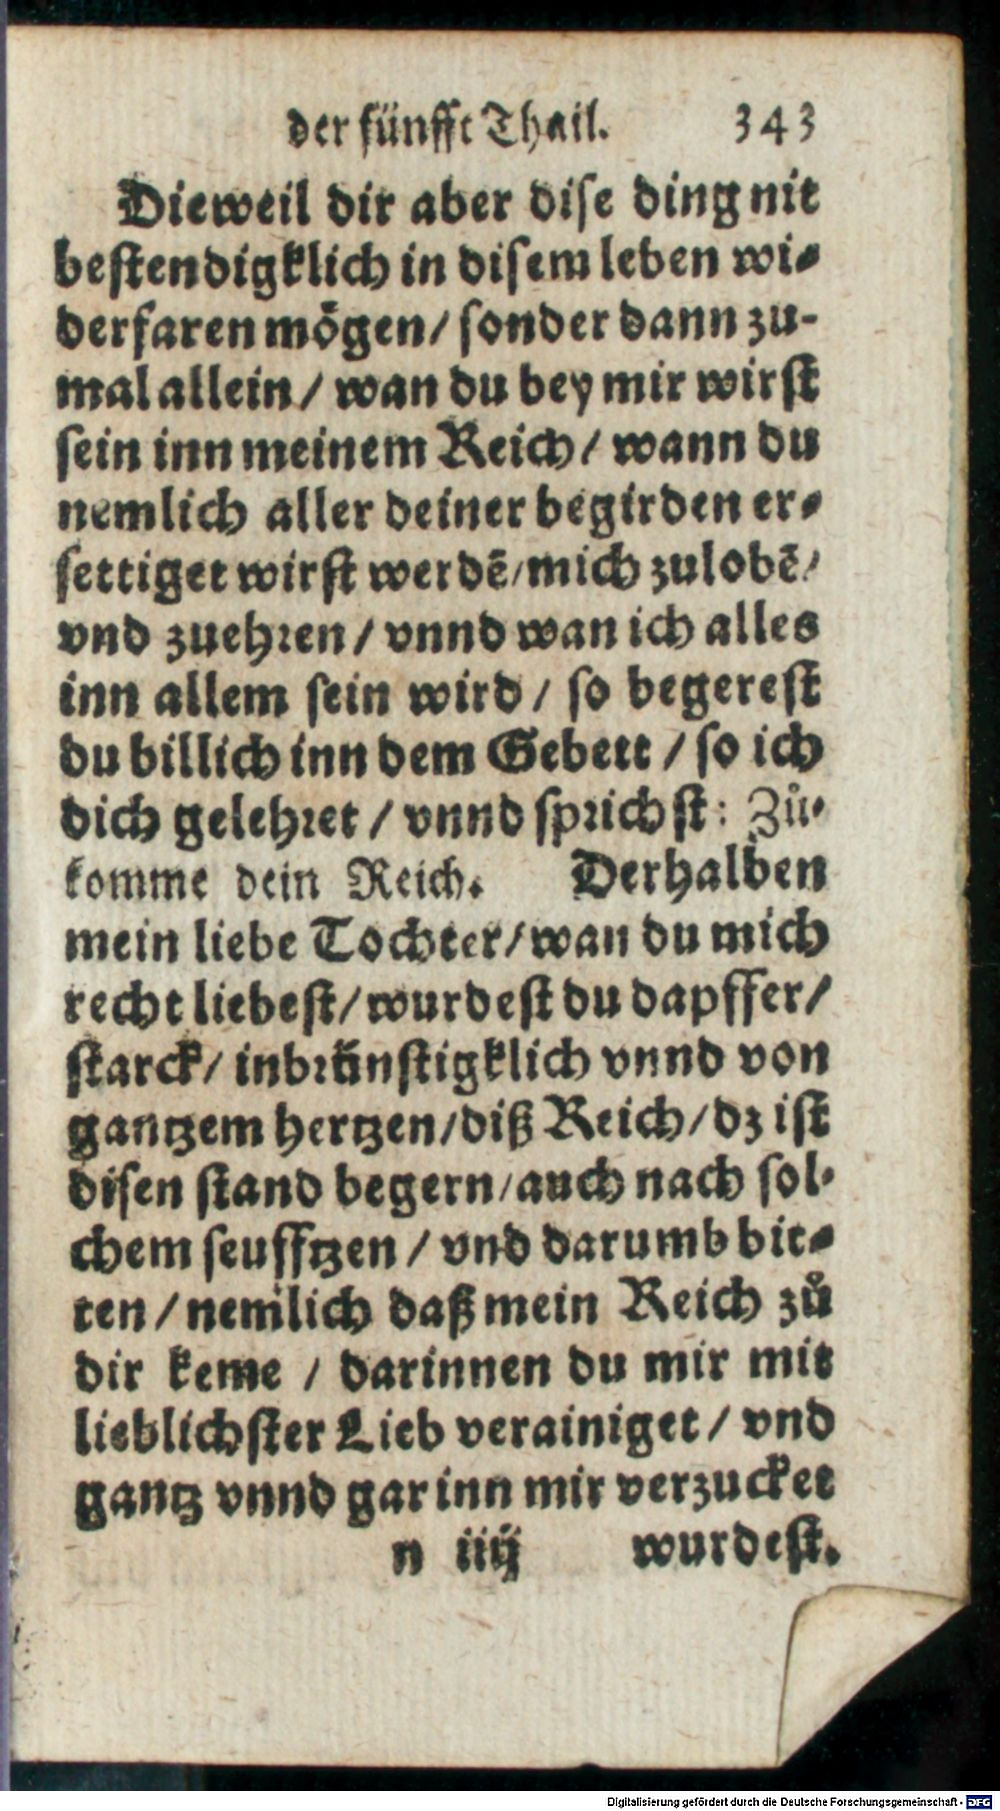 der fünfft Thail. 343
Dieweil dir aber dise ding nit
bestendigklich in disem leben wi-
derfaren mögen/ sonder dann zu-
mal allein/ wan du bey mir wirst
sein inn meinem Reich/ wann du
nemlich aller deiner begirden er-
settiget wirst werdẽ/mich zulobẽ/
vnd zuehren/ vnnd wan ich alles
inn allem sein wird/ so begerest
du billich inn dem Gebett/ so ich
dich gelehret/ vnnd sprichst: Zů-
komme dein Reich. Derhalben
mein liebe Tochter/wan du mich
recht liebest/wurdest du dapffer/
starck/ inbrünstigklich vnnd von
gantzem hertzen/diß Reich/dz ist
disen stand begern/auch nach sol-
chem seufftzen/ vnd darumb bit-
ten/nemlich daß mein Reich zů
dir keme/ darinnen du mir mit
lieblichster Lieb verainiget/ vnd
gantz vnnd gar inn mir verzucket
n iiij wurdest.
Digitalisierung gefördert durch die Deutsche Forschungsgemeinschaft - DFG